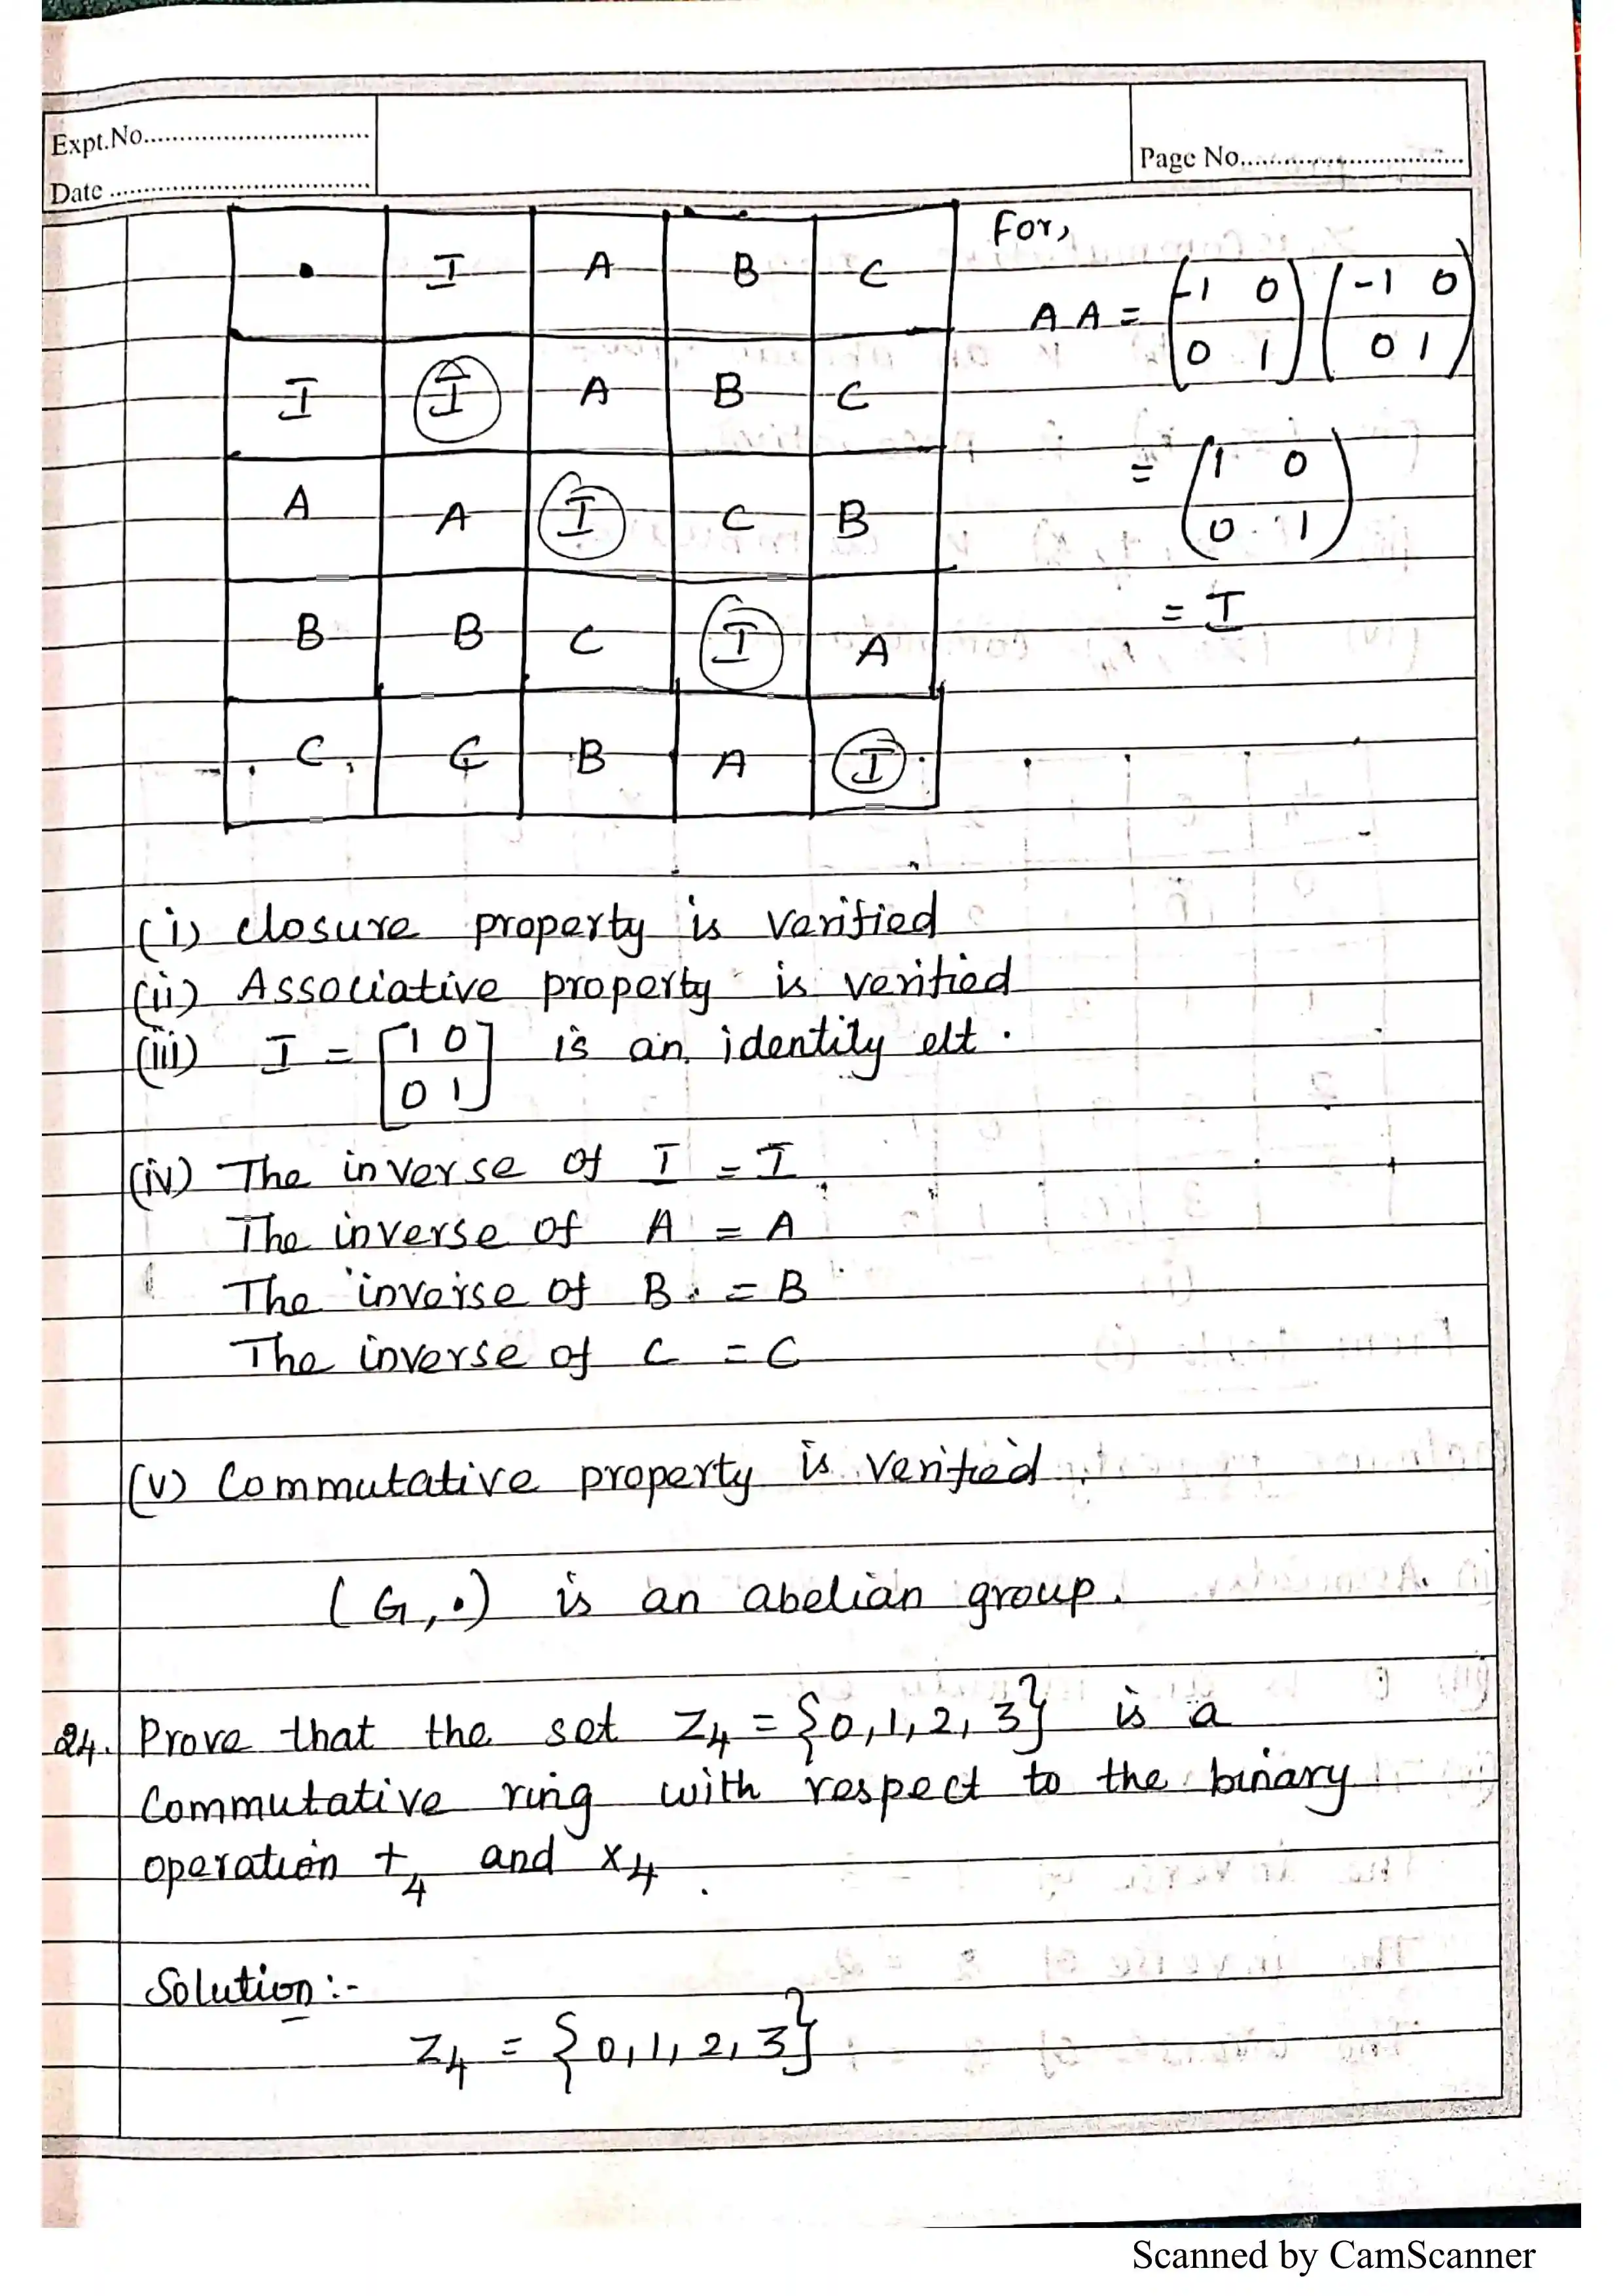 Expt.No.
Date
Page No.
• I A B C
I I A B C
A A I C B
B B C I A
C C B A I
For,
AA = (-1 0) (-1 0)
(0 1) (0 1)
= (1 0)
(0 1)
= I
(i) closure property is verified
(ii) Associative property is verified
(iii) I = [1 0] is an identity elt.
[0 1]
(iv) The inverse of I = I
The inverse of A = A
The inverse of B = B
The inverse of C = C
(v) Commutative property is verified.
(G, •) is an abelian group.
24. Prove that the set Z4 = {0, 1, 2, 3} is a
Commutative ring with respect to the binary
operation +4 and ×4.
Solution :-
Z4 = {0, 1, 2, 3}
Scanned by CamScanner